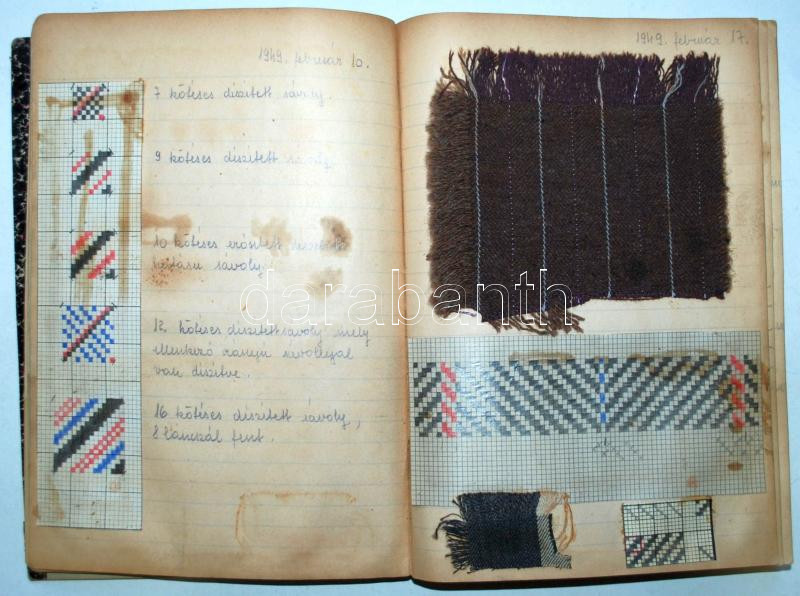 1949. február 10.
7 kötéses díszített sávoly.
9 kötéses díszített sávoly.
10 kötéses erősített
hatású sávoly.
12 kötéses díszített sávoly, mely
ellenkező irányú sávollyal
van díszítve.
16 kötéses díszített sávoly,
8 láncszál fent.
1949. február 17.
darabanth